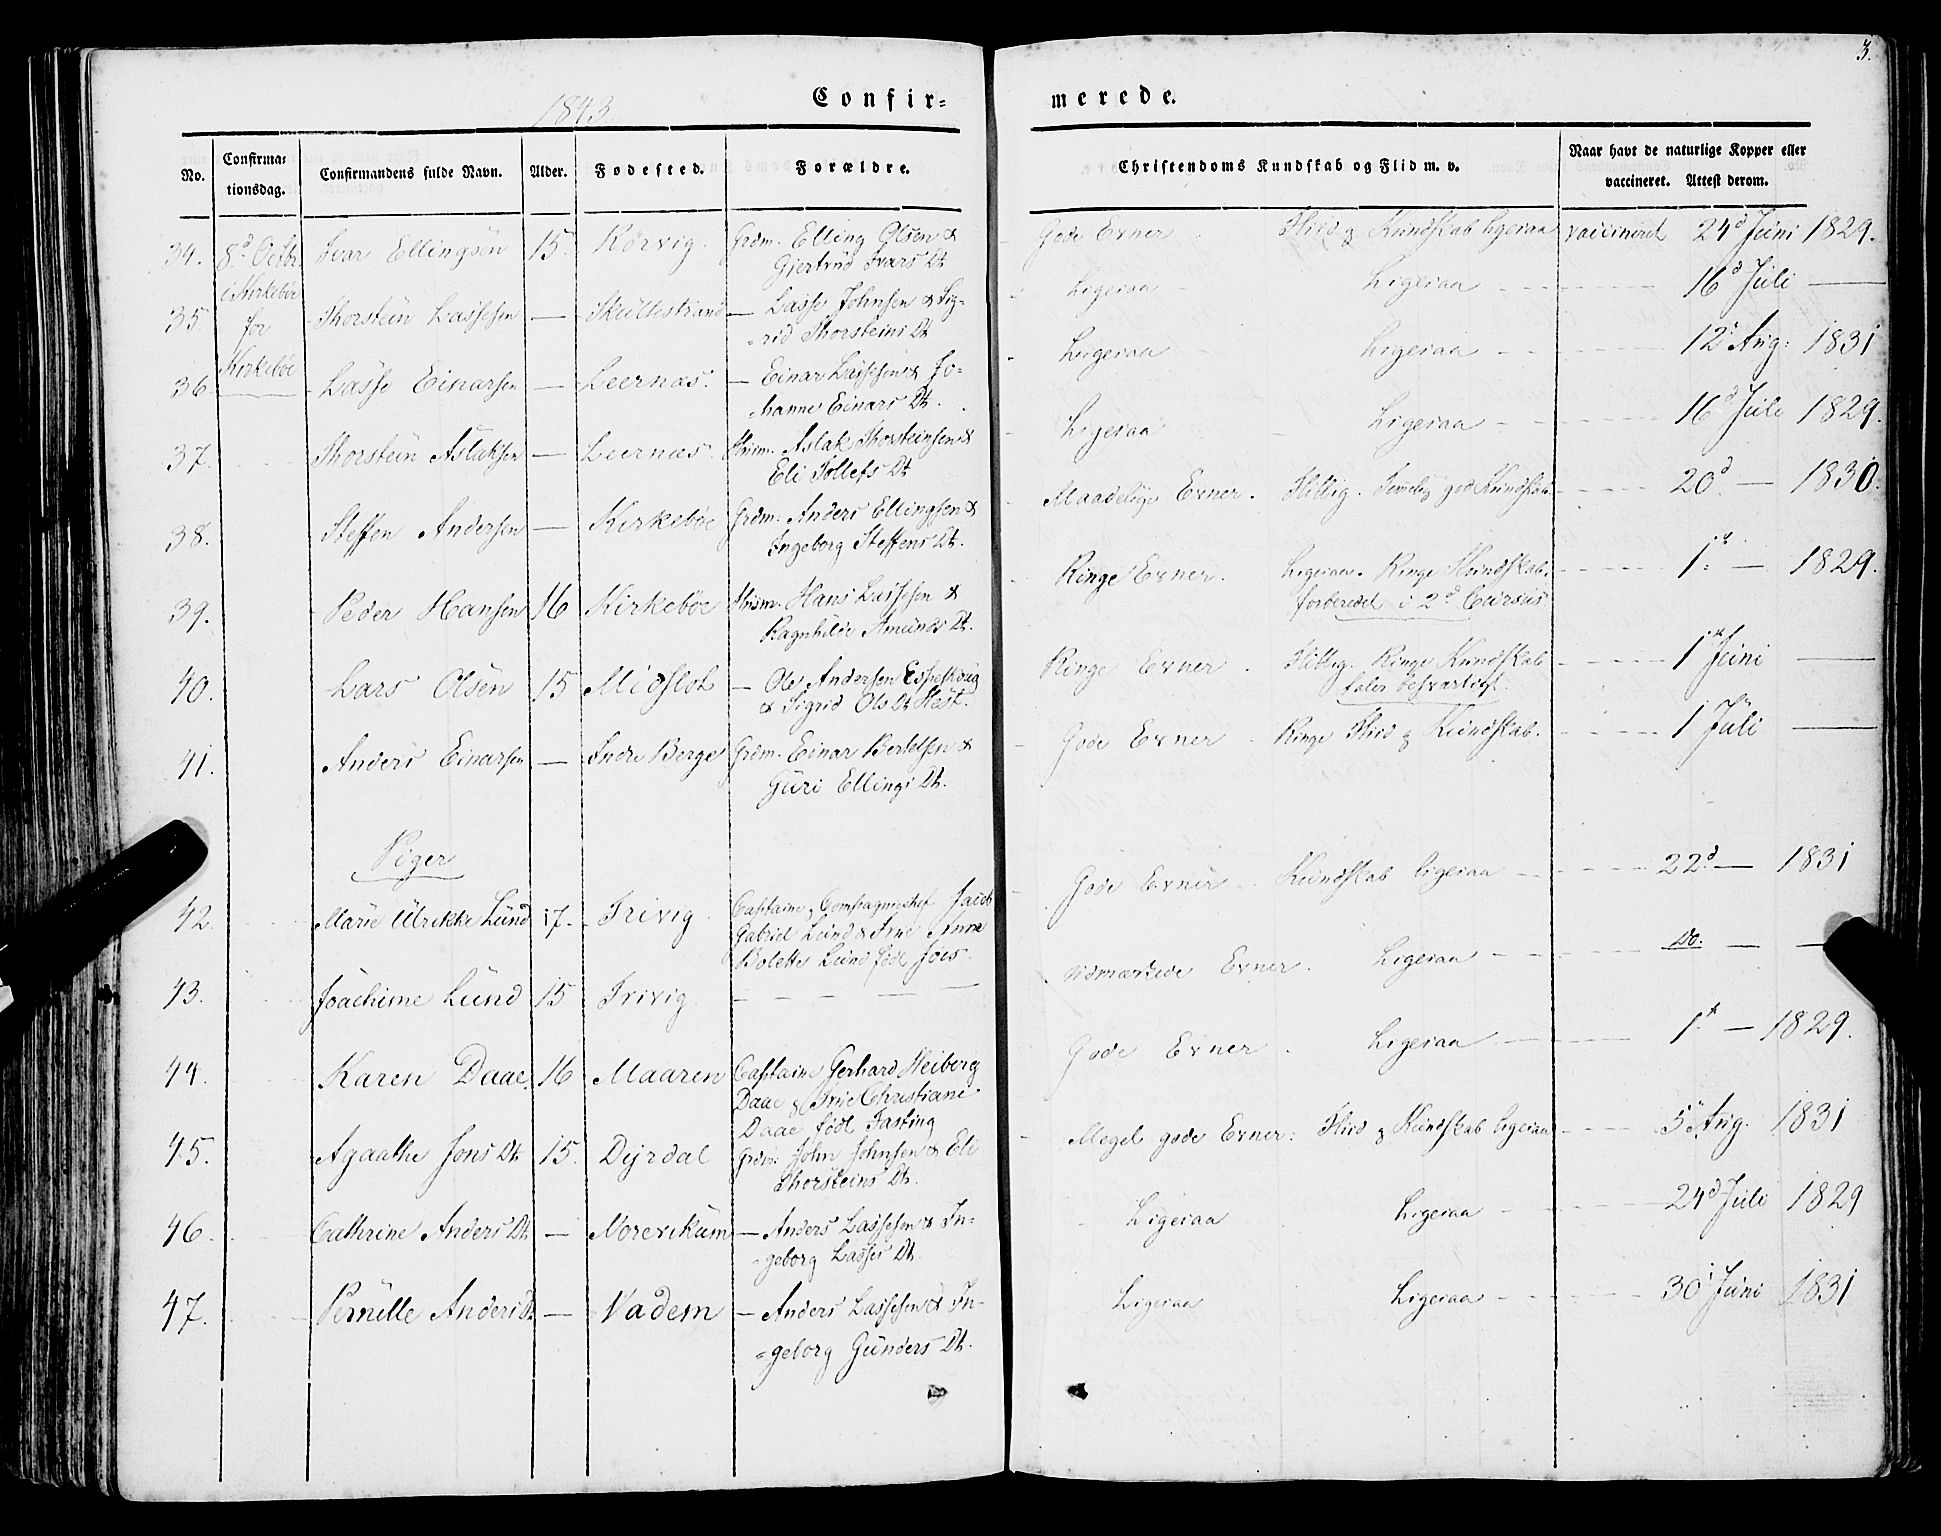 3.
1843
Confir=
merede.
No. Confirma= tionsdag. Confirmandens fulde Navn. Alder. Fødested. Forældre. Christendoms Kundskab og Flid m. v. Naar havt de naturlige Kopper eller vaccineret. Attest derom.
34. 8d Octbr Ivar Ellingsen 15. Rørvig. Grdm. Elling Olsen & Gode Evner. Flid og Kundskab ligesaa vaccineret 24d Juni 1829.
i Kirkebøe Gjertrud Ivars Dt
35. for Thorstein Lassesen — — Lasse Johnsen & Sig= Ligesaa Ligesaa 16d Juli —
=rid Thorsteins Dt
36. Kirkebøe Lasse Einarsen — Leernæs. — Einar Lassesen & Jo= Ligesaa Ligesaa 12t Aug: 1831
=hanne Einars Dt.
37. Thorstein Aslaksen — Leernæs. Huusm. Aslak Thorsteinsen & Ligesaa Ligesaa 16d Juli 1829.
Eli Tollefs Dt
38. Steffen Andersen — Kirkebøe Grdm. Anders Ellingsen & Maadelige Evner. Flittig. Temmelig god Kundskab 20d — 1830.
Ingeborg Steffens Dt.
39. Peder Hansen 16 Kirkebøe Huusm. Hans Lassesen & Ringe Evner. Ligesaa. Ringe Kundskab. 1t — 1829.
Ragnhilde Amunds Dt. forberedet i 2d Cursus
40. Lars Olsen 15 Midslet — Ole Andersen Ringe Evner. Flittig. Ringe Kundskab 1t Juni —
& Sigrid Ols Dt taler besværligt.
41. Anders Einarsen — Indre Berge Grdm. Einar Bertelsen & Gode Evner. Ringe Flid og Kundskab. 1 Juli —
Guri Ellings Dt.
Piger
42. Marie Ulrikke Lund 17. Trivig. Captaine og Compagniechef Jacob Gode Evner. Kundskab ligesaa 22d — 1831
Gabriel Lund & Frue Anna
Bolette Lund født
43. Joachime Lund 15 Trivig — — — — — Udmærkede Evner. Ligesaa do. — —
44. Karen Daae. 16 Maaren Captaine Gerhard Heiberg Gode Evner. Ligesaa 1t — 1829.
Daae og Frue Christiane
Daae født Fasting
45. Agaathe Jons Dt. 15. Dyrdal Grdm. John Johnsen & Eli Meget gode Evner: Flid og Kundskab ligesaa 5t Aug. 1831
Thorsteins Dt.
46. Cathrine Anders Dt. — Norevikum — Anders Lassesen & In= Ligesaa Ligesaa 24d Juli 1829
=geborg Lasses Dt.
47. Pernille Anders Dt. — Vadem — Anders Lassesen & In= Ligesaa Ligesaa 30 Juni 1831
=geborg Gunders Dt.